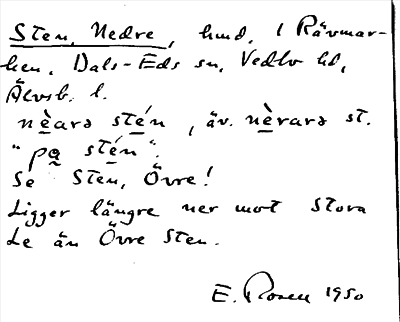 Sten, Nedre, hmd, i Rävmar-
ken, Dals-Eds sn, Vedbo hd,
Älvsb. l.
nè̱arə sté̱n, äv. nè̱rarə st.
"pa̰ sté̱n".
Se Sten, Övre!
Ligger längre ner mot Stora
Le än Övre Sten.
E. Rosell 1950